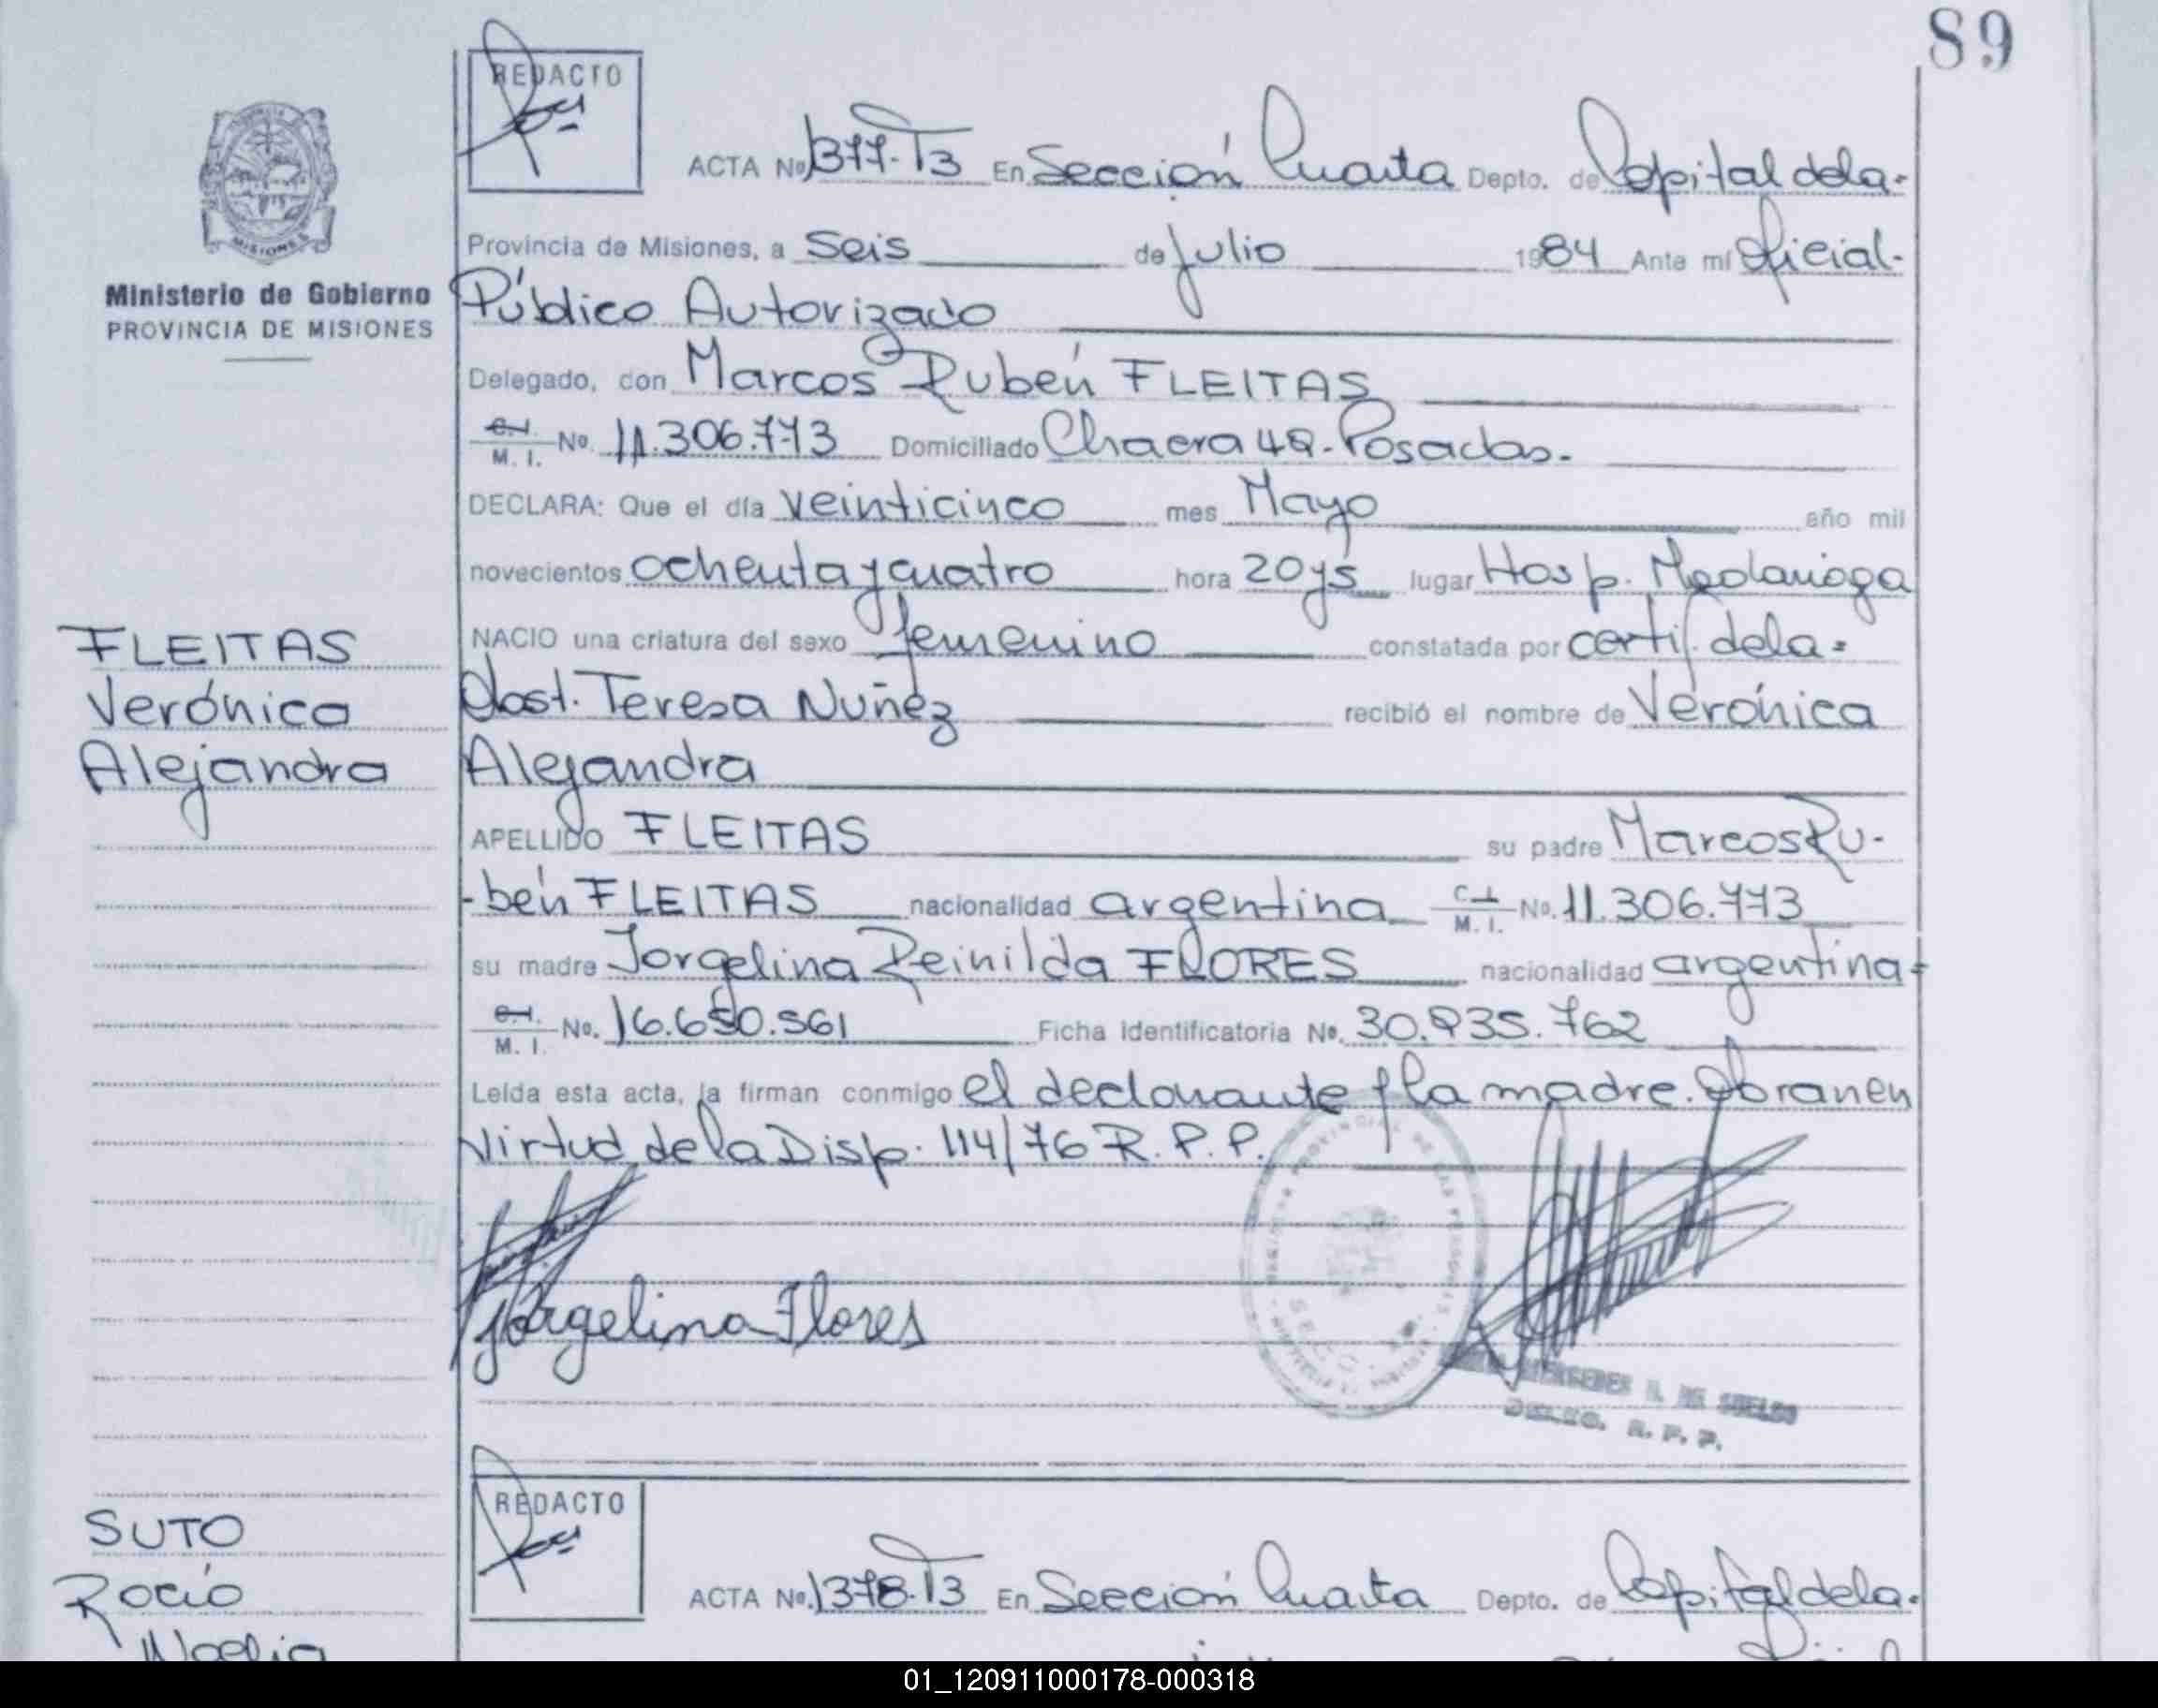 89
REDACTO
ACTA No 1377-T3 En Sección Cuarta Depto. de Capital de la-
Provincia de Misiones, a Seis de Julio 1984 Ante mí Oficial-
Ministerio de Gobierno
PROVINCIA DE MISIONES
Público Autorizado
Delegado, don Marcos Rubén FLEITAS
C.I. M. I. No. 11.306.773 Domiciliado Chacra 49-Posadas.-
DECLARA: Que el día veinticinco mes Mayo año mil
novecientos ochenta y cuatro hora 20y5 lugar Hosp. Madariaga
NACIO una criatura del sexo femenino constatada por certif. de la-
FLEITAS
Verónica
Alejandra
Obst. Teresa Nuñez recibió el nombre de Verónica
Alejandra
APELLIDO FLEITAS su padre Marcos Ru-
-bén FLEITAS nacionalidad argentina C.I. M. I. No. 11.306.773
su madre Jorgelina Reinilda FLORES nacionalidad argentina-
C.I. M. I. No. 16.650.561 Ficha Identificatoria No. 30.935.762
Leída esta acta, la firman conmigo el declarante y la madre. Obran en
Virtud de la Disp. 114/76 R.P.P.
Jorgelina Flores
SELLO
R. P. P.
REDACTO
SUTO
Rocío
Noelia
ACTA No. 1378-T3 En Sección Cuarta Depto. de Capital de la-
01_120911000178-000318